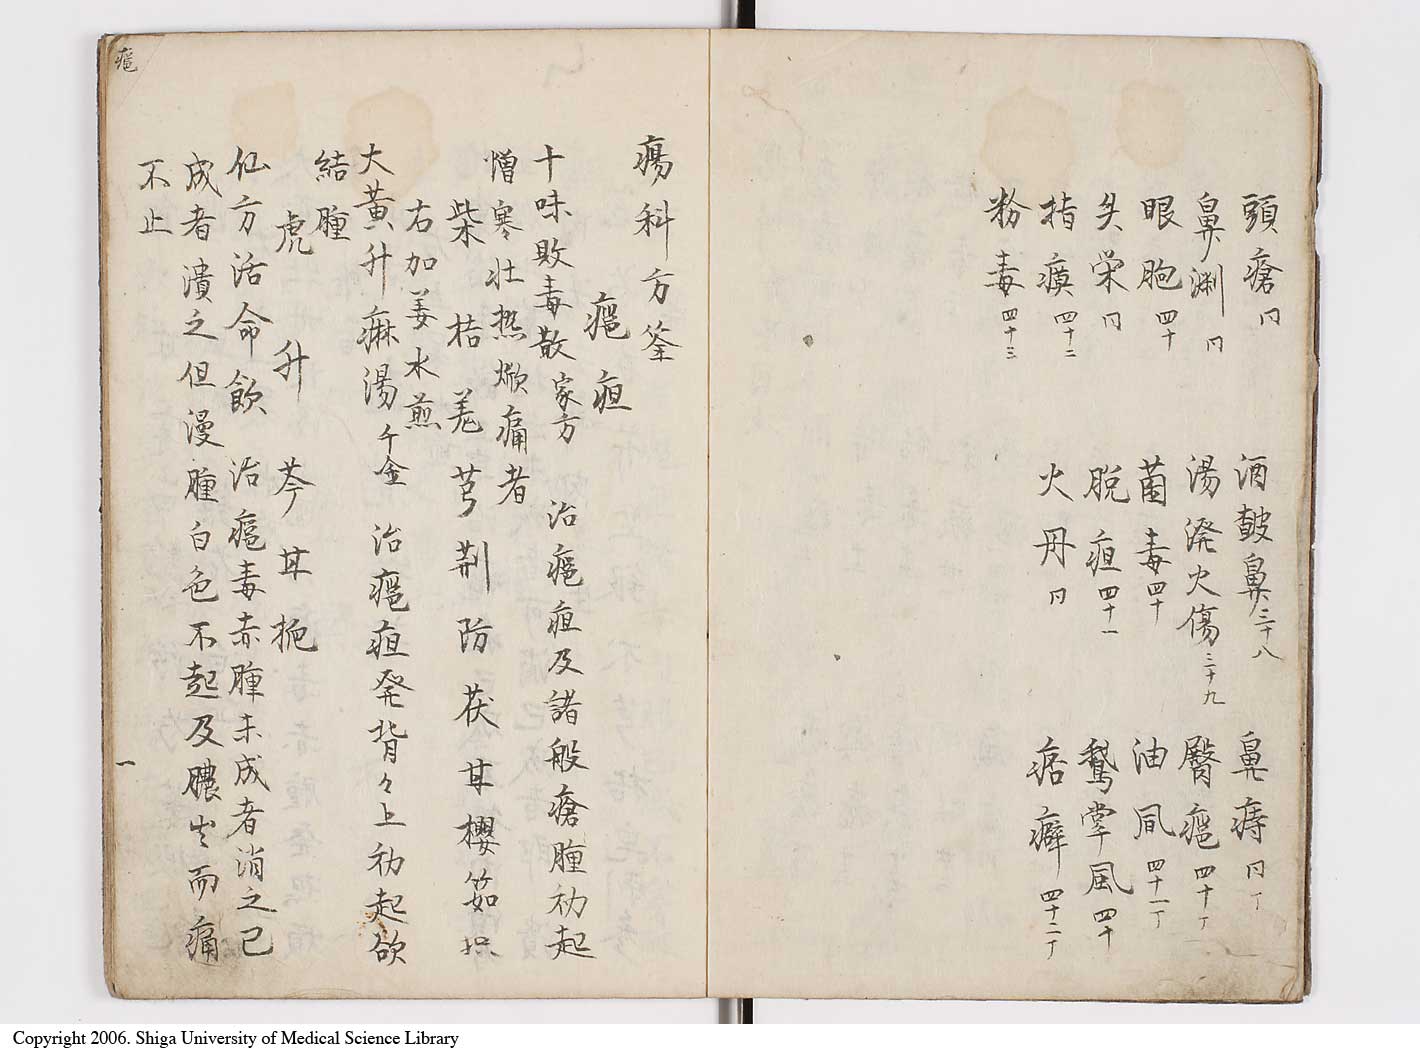 頭瘡 同
酒皶鼻 三十八
鼻痔 同丁
鼻渕 同
湯溌火傷 三十九
臀瘟 四十丁
眼胞 四十
菌毒 四十
油風 四十一丁
失栄 同
脱疽 四十一
鵞掌風 四十
指瘼 四十二
火丹 同
痞癖 四十二丁
粉毒 四十三
瘍科方筌
瘟疽
十味敗毒散 家方 治瘟疽及諸般瘡腫初起
憎寒壮熱焮痛者
柴 桔 羌 芎 荊 防 茯 甘 櫻 筎 枳
右加姜水煎
大黄升麻湯 千金 治瘟疽発背々上初起欲
結腫
虎 升 芩 甘 梔
仙方活命飲 治瘟毒赤腫未成者消之已
成者潰之但漫腫白色不起及膿出而痛
不止
瘟
一
Copyright 2006. Shiga University of Medical Science Library